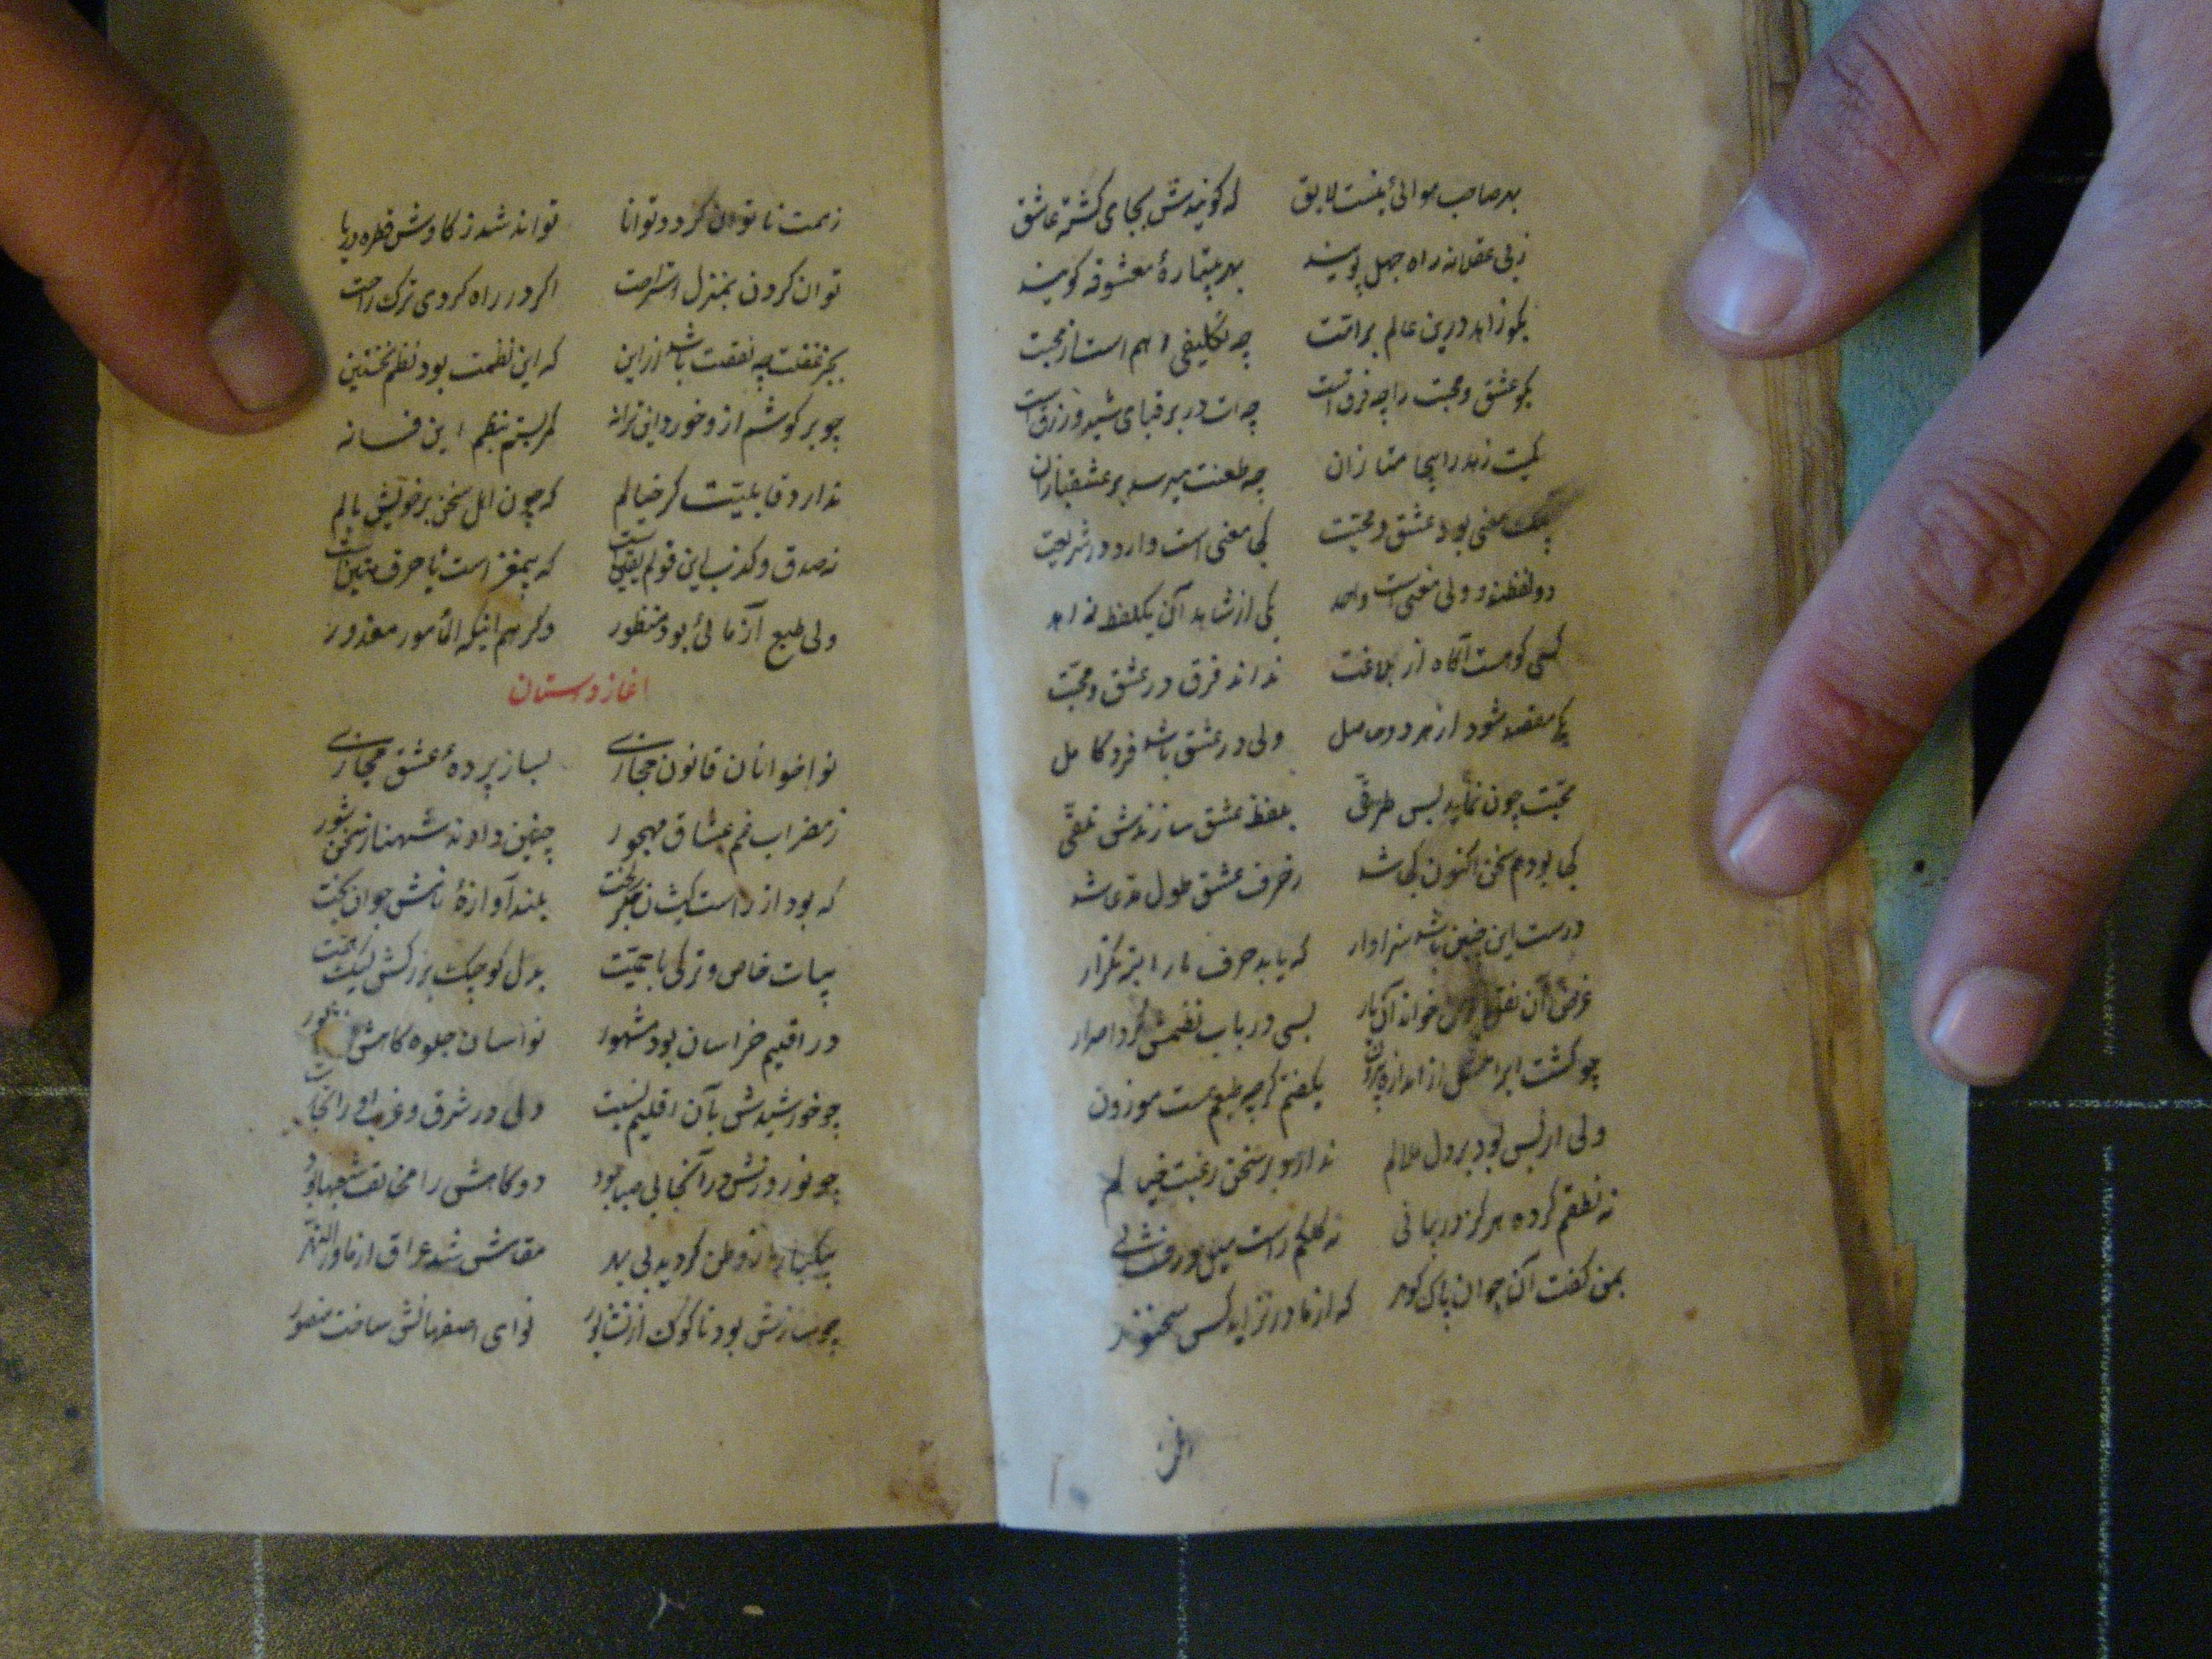 بهر صاحب هوائی نیست لایق که گویندش بجای کشته عاشق
ز بی عقلانه راه جهل پویند بهر پتیاره معشوقه گویند
بگو زاهد درین عالم براتت چه تکلیفی اهم است از محبت
بگو عشق و محبت را چه فرق است چه ات در بر قبای شید و زرق است
چه طعنت میرسد بر عشقبازان
یک معنی بود عشق و محبت کی معنی است وارد در شریعت
دو لفظند و ولی معنی است واحد یکی از شاهد آن یک لفظ زاهد
کسی کو هست آگاه از بلاغت نداند فرق در عشق و محبت
یک مقصد شود از هر دو حاصل ولی در عشق باشد فرد کامل
محبت چون نماید بس طرقی بلفظ عشق سازندش تلقی
کی بودم سخن اکنون کی شد ز حرف عشق طول مدعا شد
درست این چنین باشد سزاوار که یابد حرف مار البته تکرار
غرض آن نقل خواند آن یار بسی در باب نظمش کرد اصرار
چو گشت ابرامش از اندازه بیرون بگفتم گرچه طبعم هست موزون
ولی از بس بود بر دل ملالم ندارد بر سخن رغبت خیالم
نه نطقم کرده هرگز در بیانی نه کلکم راست میل در فشانی
بمن گفت آن جوان پاک گوهر که از مادر نزاید کس سخنور
زهمت ناتوان گردد توانا تواند شد ز کاوش قطره دریا
توان کردن بمنزل استراحت اگر در راه کردی ترک راحت
بجز غفلت چه نفعت باشد از این که این نظمت بود نظم نخستین
چو بر گوشم از و خورد این ترانه کمر بستم بنظم این فسانه
ندارد قابلیت گر خیالم که چون اهل سخن بر خویش بالم
نه صدق و کذب این قولم یقین است که بیمغز است یا حرف متین است
ولی طبع آزمائی بود منظور و گر هم اینکه المأمور معذور
اغاز دوستان
نواخوانان قانون حجازی بساز پرده عشق مجازی
ز مضراب غم عشاق مهجور چنین دادند شهناز سخن شور
که بود از راست کیشان بلند آوازه نامش جوان بخت
بیات خاص و ترکی با حمیت بدل کوچک بزرگش لیک همت
در اقلیم خراسان بود مشهور نواسان جلوه گاهش
چو خورشیدش بآن اقلیم نسبت ولی در شرق و غرب او را نجابت
چو نوروزش در آنجا بی صبا بود دوگاهش را مخالف شعبها بود
ز وطن گردید بی بهر مقامش شد عراق از ماورالنهر
چو سازش بود ناکوک از نشابور نوای اصفهانش ساخت منصور